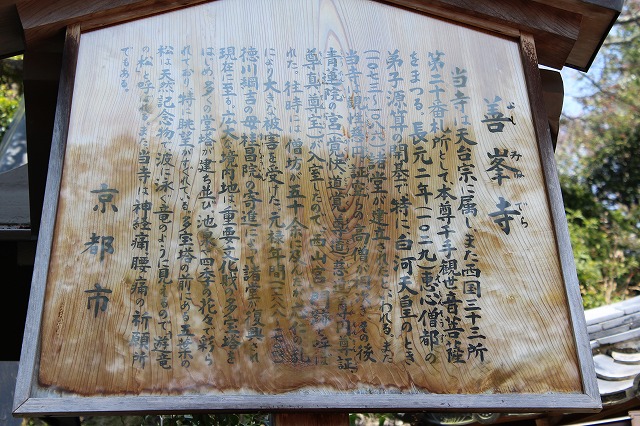 善峯寺
よしみねでら
当寺は天台宗に属しまた西国三十三所
第二十番札所として本尊千手観世音菩薩
をまつる。長元二年(一〇二九)恵心僧都の
弟子源算の開基で、特に白河天皇のとき
諸堂が建立されたといわれる。また
当寺は親性
の高僧が
その後
青蓮院の宮
が入室したので、西山宮門跡と呼ば
れた。往時には僧坊が五十余に及んだが
の乱
により大きな被害を受けた。元禄年間
徳川綱吉の母桂昌院の寄進によって諸堂が復興され
現在に至る。広大な境内地は重要文化財の多宝塔を
はじめ多くの堂舎が建ち並び、池泉、四季の花々で彩ら
れており、特に眺望がすぐれている。多宝塔の前にある五葉の
松は天然記念物で、波に泳ぐ竜のように見えるので「遊竜
の松」と呼ばれる。また当寺は神経痛、腰痛の祈願所
でもある。
京都市